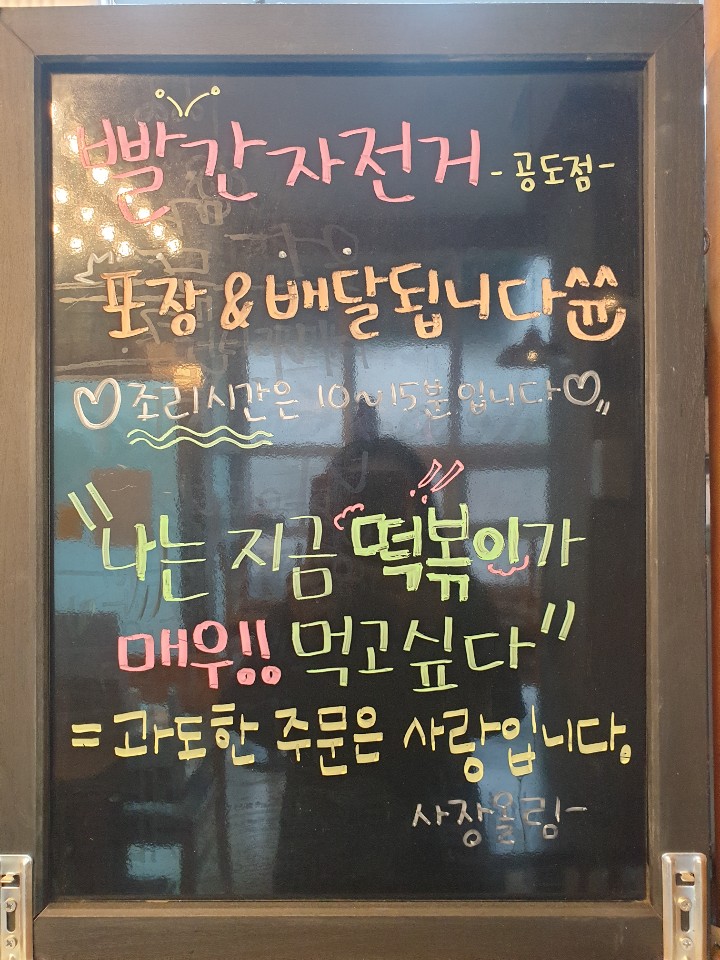 빨간자전거 -공도점-
포장&배달됩니다
♡조리시간은 10~15분입니다♡
"나는 지금 떡볶이가
매우!! 먹고싶다"
=과도한 주문은 사랑입니다.
사장올림-